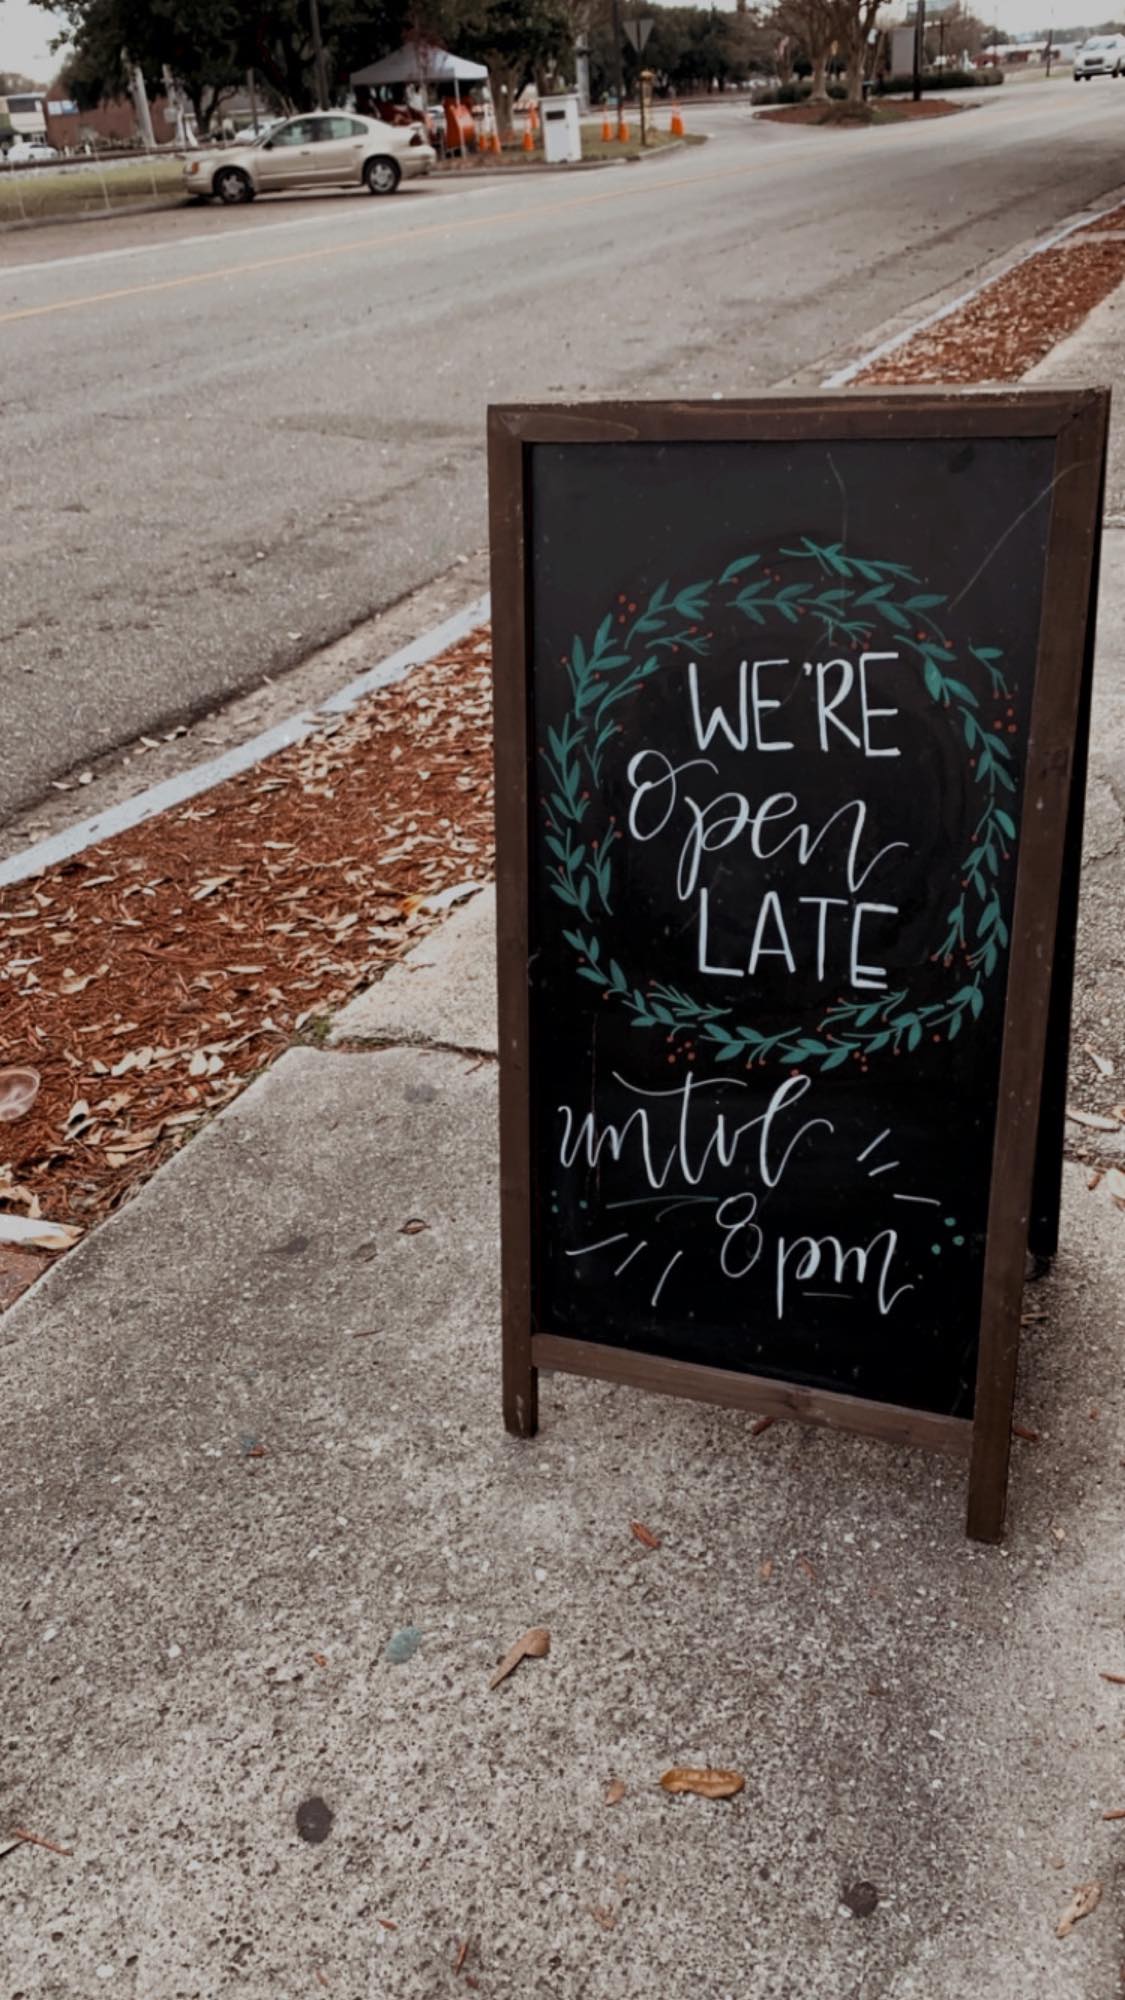 WE'RE
open
LATE
until
8pm